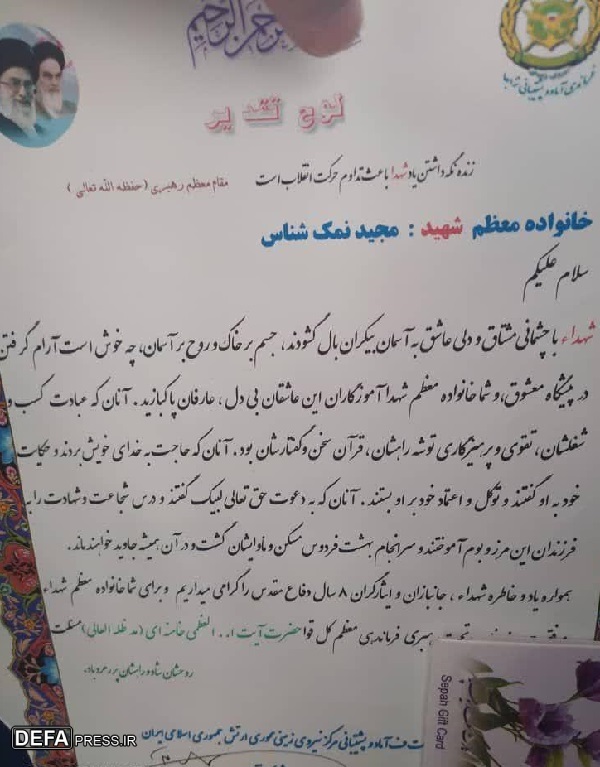 لوح تقدیر
زنده نگه داشتن یاد شهدا باعث تداوم حرکت انقلاب است
مقام معظم رهبری (حفظه الله تعالی)
خانواده معظم شهید : مجید نمک شناس
سلام علیکم
شهداء با چشمانی مشتاق و دلی عاشق به آسمان بیکران بال گشودند، جسم بر خاک و روح بر آسمان، چه خوش است آرام گرفتن
در پیشگاه معشوق، و شما خانواده معظم شهدا آموزگاران این عاشقان بی دل، عارفان پاکبازید. آنان که عبادت کسب و
شغلشان، تقوی و پرهیزکاری توشه راهشان، قرآن سخن و گفتارشان بود. آنان که حاجت به خدای خویش بردند و حکایت
خود به او گفتند و توکل و اعتماد خود بر او بستند. آنان که به دعوت حق تعالی لبیک گفتند و درس شجاعت و شهادت را به
فرزندان این مرز و بوم آموختند و سرانجام بهشت فردوس مسکن و ماوایشان گشت و در آن همیشه جاوید خواهند ماند.
همواره یاد و خاطره شهداء، جانبازان و ایثارگران ۸ سال دفاع مقدس را گرامی میداریم و برای شما خانواده معظم شهداء
رهبری فرماندهی معظم کل قوا حضرت آیت ا... العظمی خامنه ای (مد ظله العالی) مسئلت
روحشان شاد و راهشان پر رهرو باد.
آماد و پشتیبانی مرکز نیروی زمینی محوری ارتش جمهوری اسلامی ایران
Sepah Gift Card
DEFAPRESS.IR